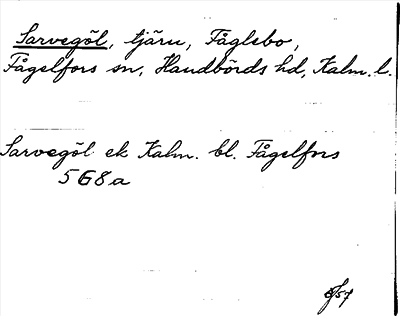 Sarvegöl, tjärn, Fåglebo,
Fågelfors sn, Handbörds hd, Kalm. l.
Sarvegöl ek Kalm. bl. Fågelfors
568a